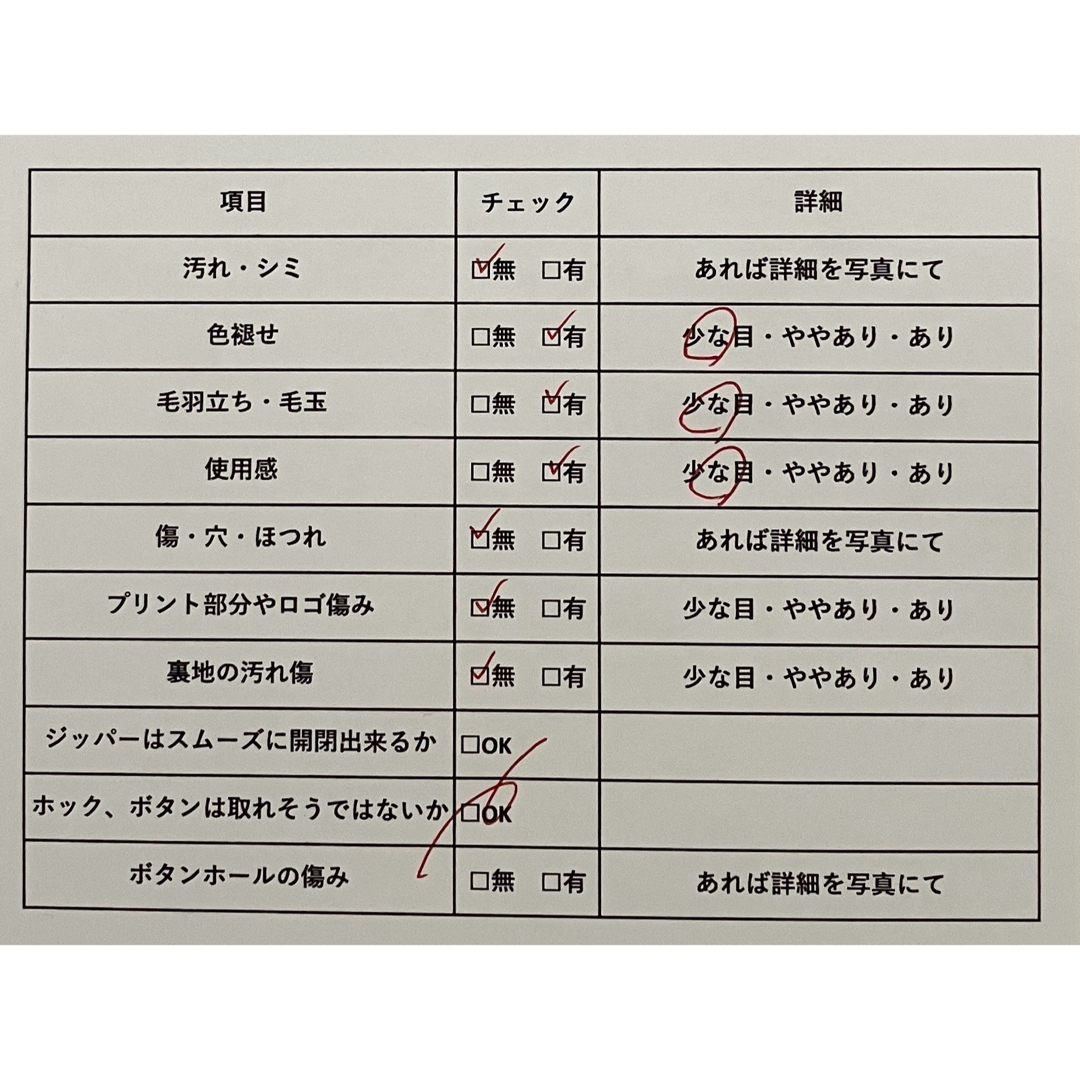 項目 チェック 詳細
汚れ・シミ ☑無 □有 あれば詳細を写真にて
色褪せ □無 ☑有 少な目・ややあり・あり
毛羽立ち・毛玉 □無 ☑有 少な目・ややあり・あり
使用感 □無 ☑有 少な目・ややあり・あり
傷・穴・ほつれ ☑無 □有 あれば詳細を写真にて
プリント部分やロゴ傷み ☑無 □有 少な目・ややあり・あり
裏地の汚れ傷 ☑無 □有 少な目・ややあり・あり
ジッパーはスムーズに開閉出来るか □OK
ホック、ボタンは取れそうではないか □OK
ボタンホールの傷み □無 □有 あれば詳細を写真にて